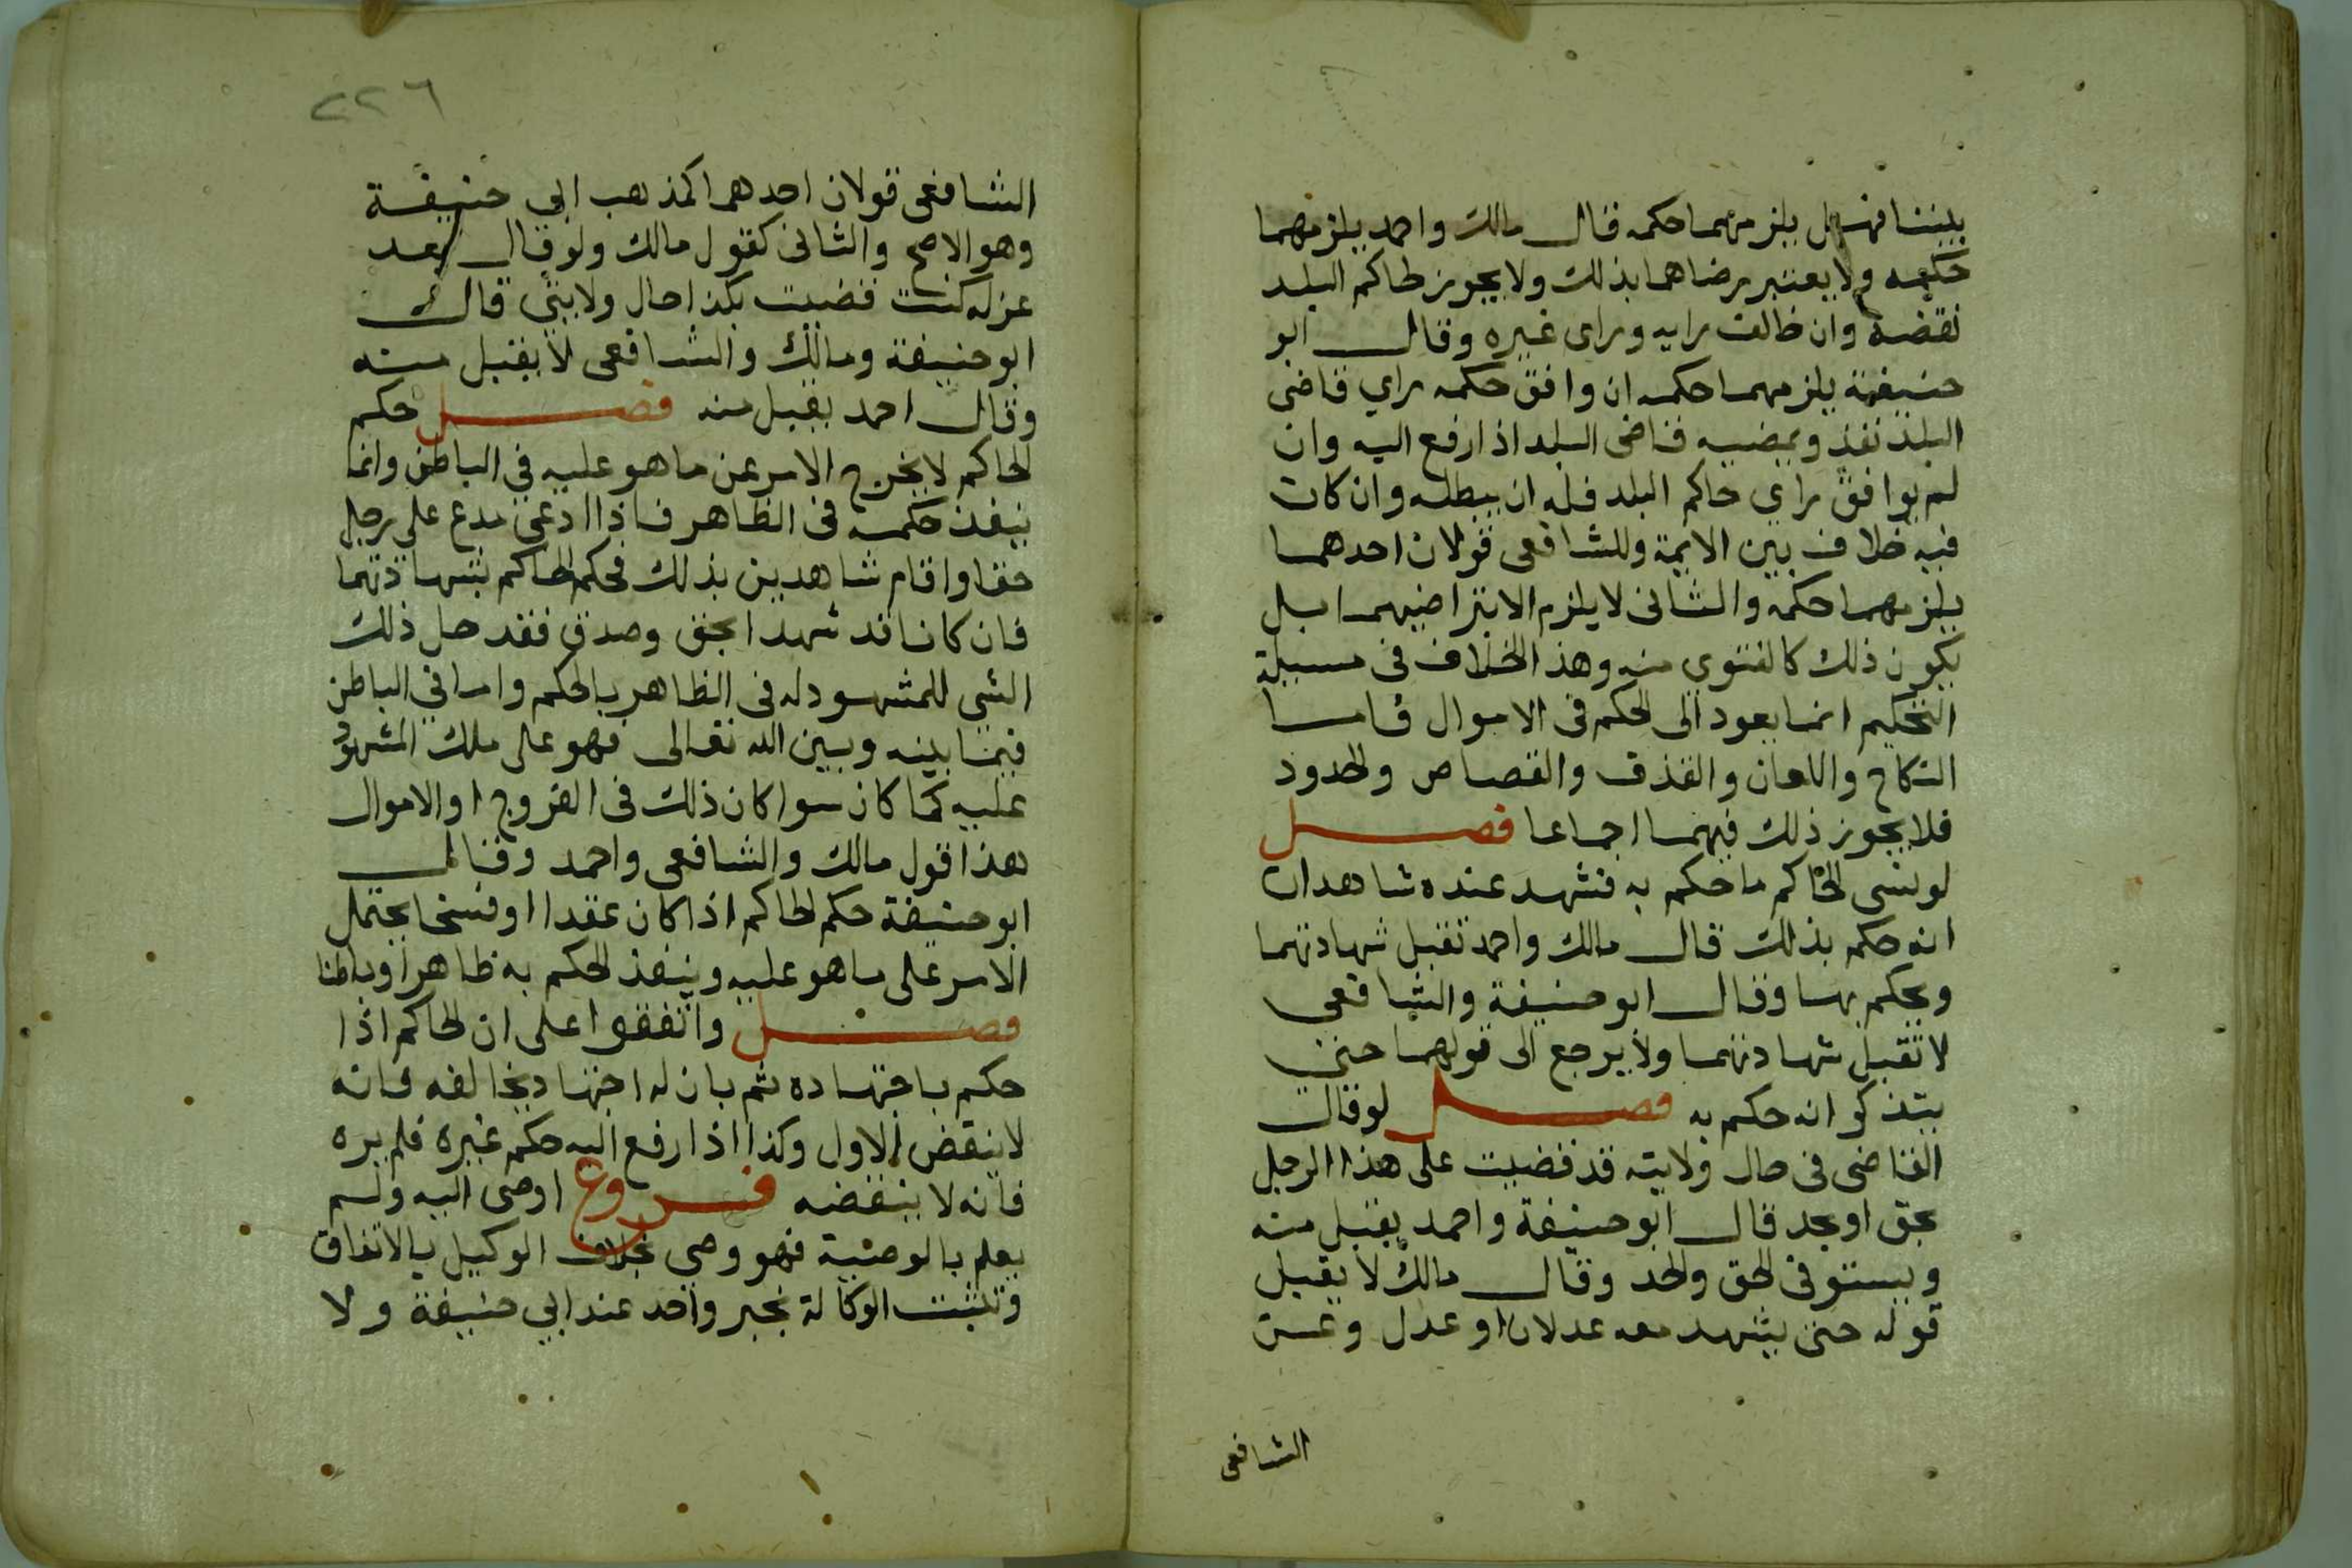 بيننا فهل يلزمهما حكمه قال مالك واحمد يلزمهما
حكمه ولا يعتبر رضاهما بذلك ولا يجوز لحاكم البلد
نقضه وان خالف رايه وراى غيره وقال ابو
حنيفة يلزمهما حكمه ان وافق حكمه راي قاضى
البلد نفذ ويمضيه قاضى البلد اذا رفع اليه وان
لم يوافق راي حاكم البلد فله ان يبطله وان كان
فيه خلاف بين الايمة وللشافعى قولان احدهما
يلزمهما حكمه والثانى لا يلزم الا بتراضيهما بل
يكون ذلك كالفتوى منه وهذا الخلاف فى مسيلة
التحكيم انما يعود الى الحكم فى الاموال فاما
النكاح واللعان والقذف والقصاص والحدود
فلا يجوز ذلك فيهما اجماعا فصل
لو نسى الحاكم ما حكم به فشهد عنده شاهدان
انه حكم بذلك قال مالك واحمد تقبل شهادتهما
ويحكم بها وقال ابو حنيفة والشافعى
لا تقبل شهادتهما ولا يرجع الى قولهما حتى
يتذكر انه حكم به فصل لو قال
القاضى فى حال ولايته قد قضيت على هذا الرجل
بحق او بحد قال ابو حنيفة واحمد يقبل منه
ويستوفى الحق والحد وقال مالك لا يقبل
قوله حتى يشهد معه عدلان او عدل وعن
الشافعى
٢٢٦
الشافعى قولان احدهما كمذهب ابي حنيفة
وهو الاصح والثانى كقول مالك ولو قال بعد
عزله كنت قضيت بكذا حال ولايتى قال
ابو حنيفة ومالك والشافعى لا يقبل منه
وقال احمد يقبل منه فصل حكم
الحاكم لا يخرج الامر عن ما هو عليه فى الباطن وانما
ينفذ حكمه فى الظاهر فاذا ادعى مدع على رجل
حقا واقام شاهدين بذلك فحكم الحاكم بشهادتهما
فان كانا قد شهدا بحق وصدق فقد حل ذلك
الشى للمشهود له فى الظاهر بالحكم واما فى الباطن
فيما بينه وبين الله تعالى فهو على ملك المشهود
عليه كما كان سوا كان ذلك فى الفروج او الاموال
هذا قول مالك والشافعى واحمد وقال
ابو حنيفة حكم الحاكم اذا كان عقدا او فسخا يحتمل
الامر على ما هو عليه وينفذ الحكم به ظاهرا وباطنا
فصل واتفقوا على ان الحاكم اذا
حكم باجتهاده ثم بان له اجتهاد يخالفه فانه
لا ينقض الاول وكذا اذا رفع اليه حكم غيره فلم يره
فانه لا ينقضه فروع اوصى اليه ولم
يعلم بالوصية فهو وصي بخلاف الوكيل بالاتفاق
وتثبت الوكالة بخبر واحد عند ابي حنيفة ولا